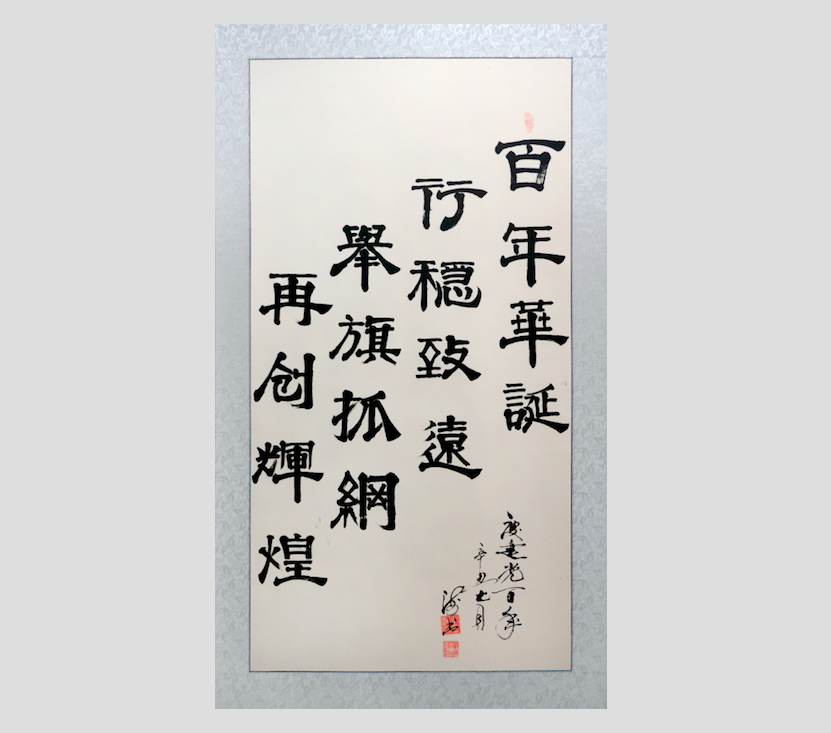 百年華誕
行穩致遠
舉旗抓綱
再创輝煌
慶建党百年
辛丑七月